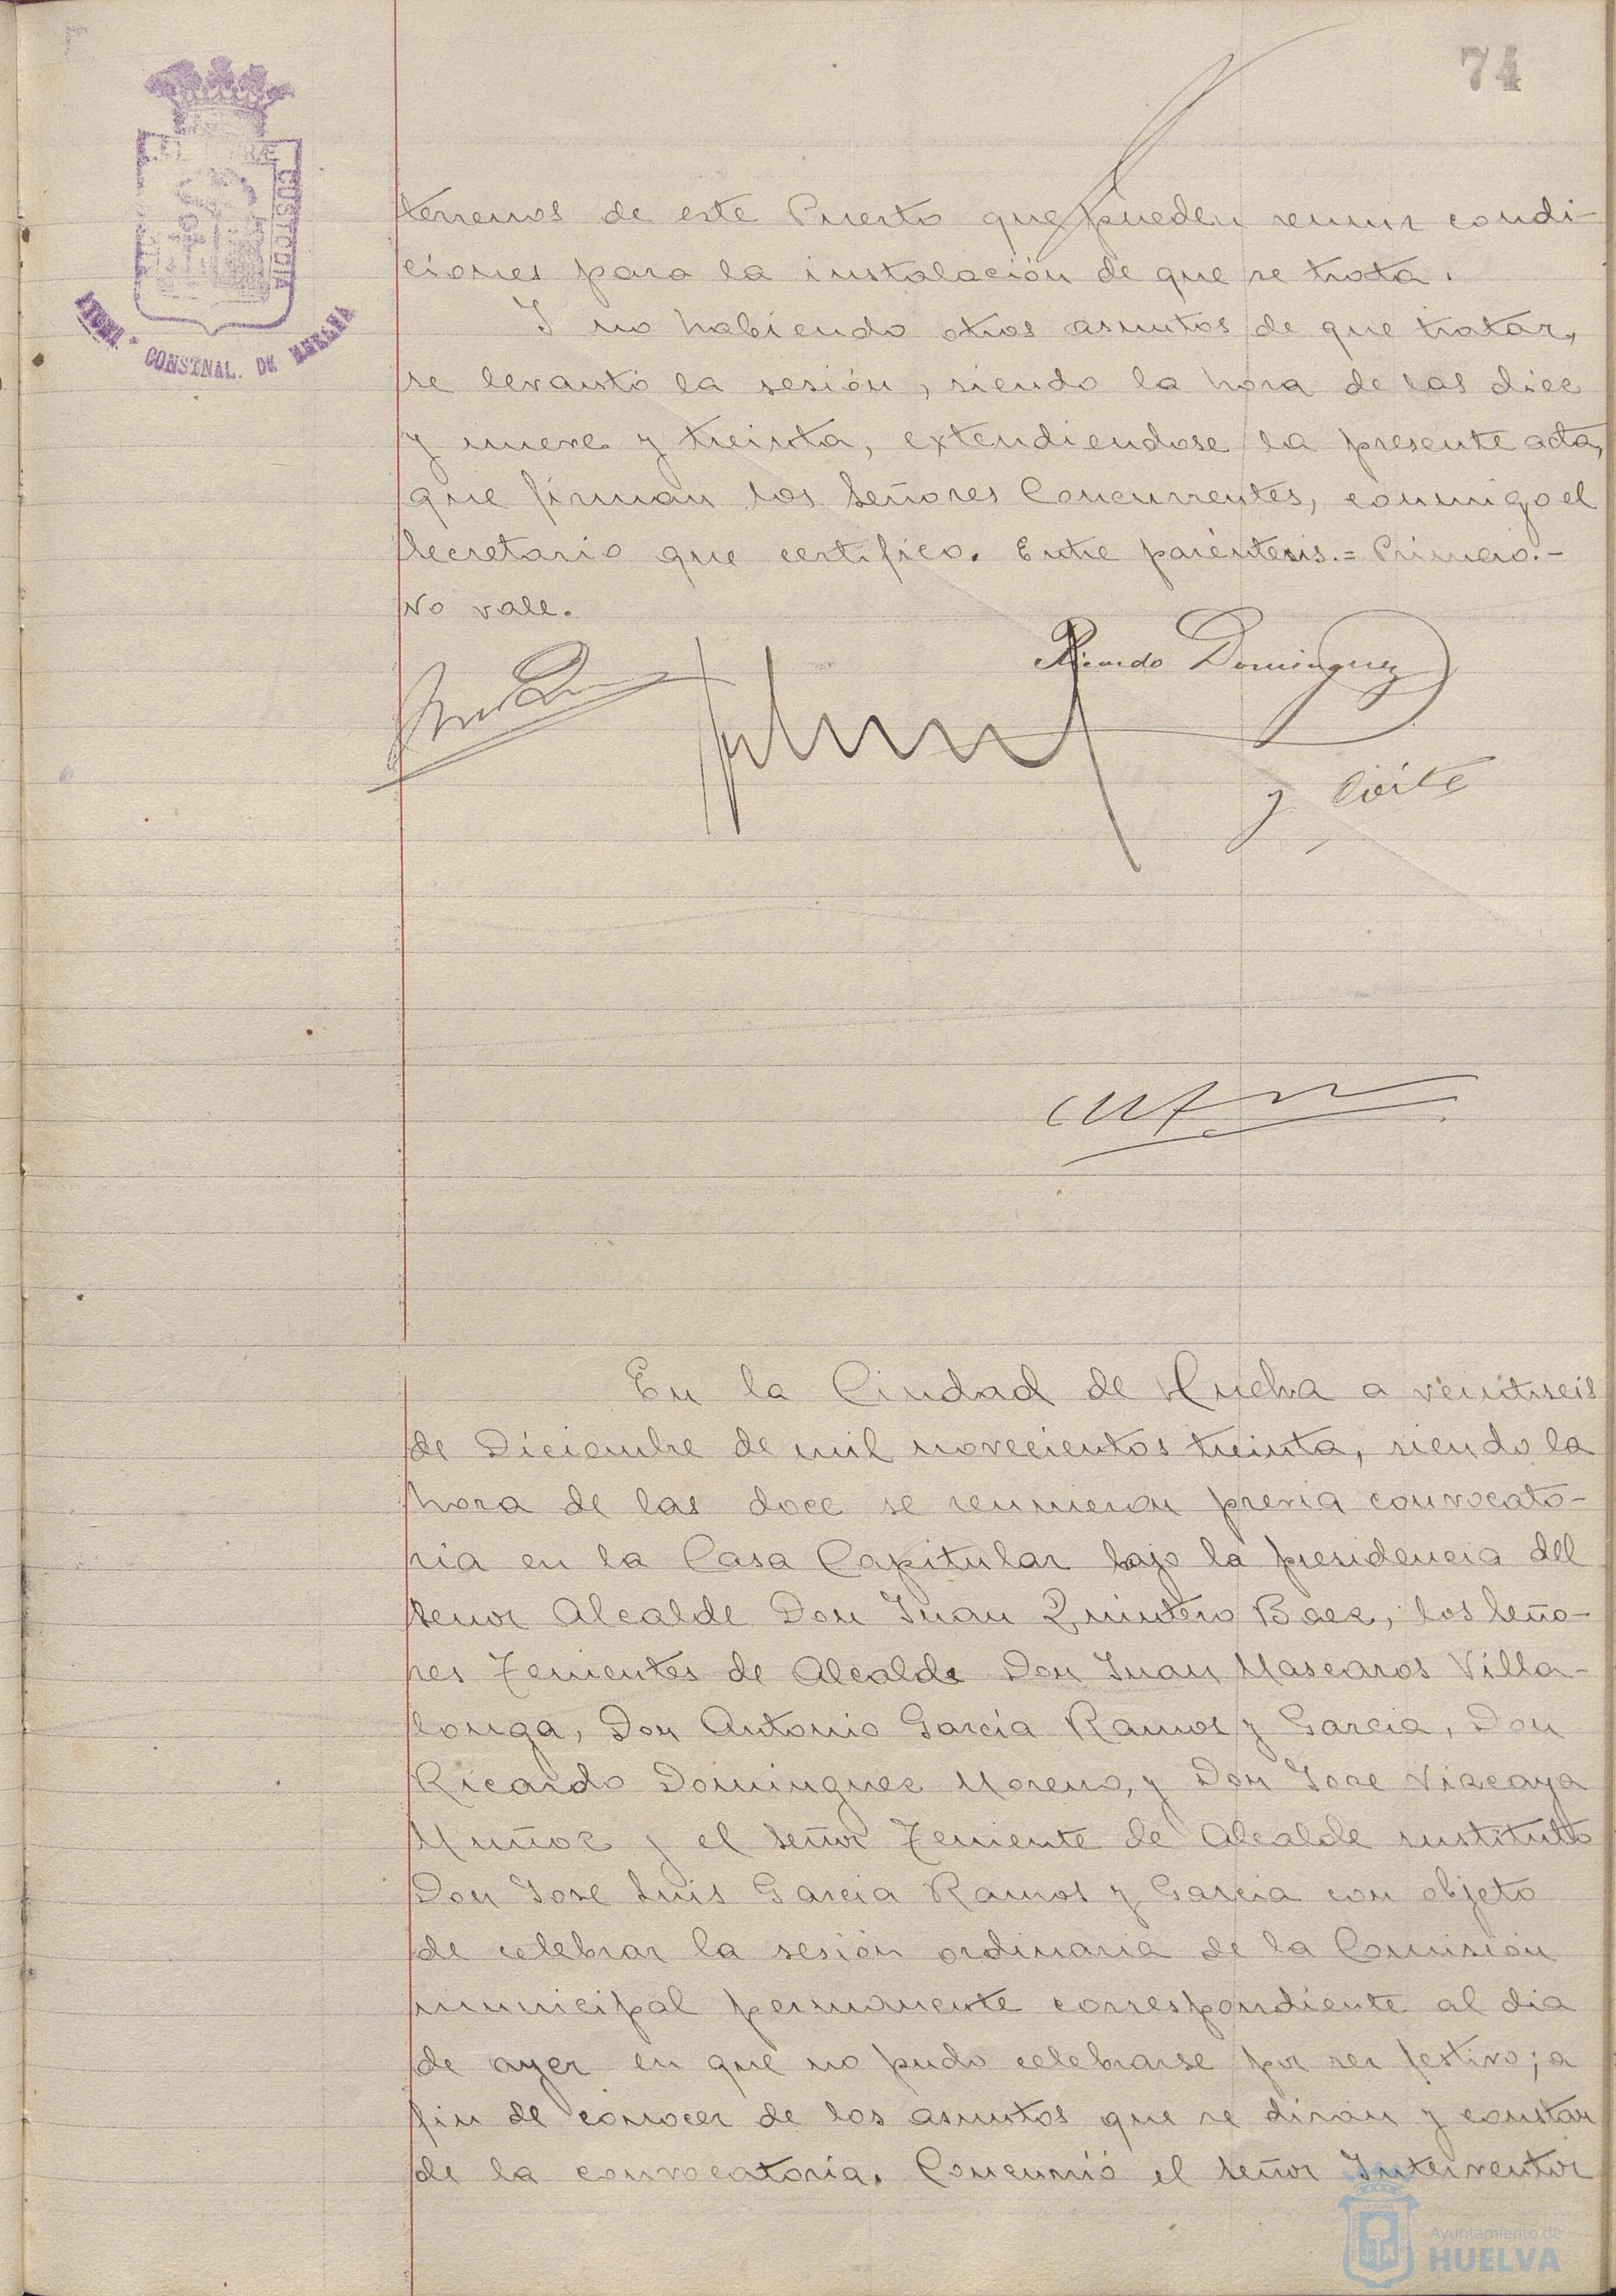 74
CUSTODIA
CONSTNAL. DE HUELVA
terrenos de este Puerto que pueden reunir condi-
ciones para la instalación de que se trata.
Y no habiendo otros asuntos de que tratar,
se levantó la sesión, siendo la hora de las diez
y nueve y treinta, extendiendose la presente acta,
que firman los Señores Concurrentes, conmigo el
Secretario que certifico. Entre paréntesis.= Primero.-
No vale.
Ricardo Dominguez
En la Ciudad de Huelva a veintiseis
de Diciembre de mil novecientos treinta, siendo la
hora de las doce se reunieron previa convocato-
ria en la Casa Capitular bajo la presidencia del
Senor Alcalde Don Juan Quintero Baez, los Seño-
res Tenientes de Alcalde Don Juan Mascaros Villa-
longa, Don Antonio García Ramos y Garcia, Don
Ricardo Dominguez Moreno, y Don Jose Vizcaya
Muñoz y el Señor Teniente de Alcalde sustituto
Don Jose Luis Garcia Ramos y Garcia con objeto
de celebrar la sesión ordinaria de la Comisión
municipal permanente correspondiente al dia
de ayer en que no pudo celebrarse por ser festivo; a
fin de conocer de los asuntos que se dirán y constan
de la convocatoria. Concurrió el Señor Interventor
Ayuntamiento de
HUELVA